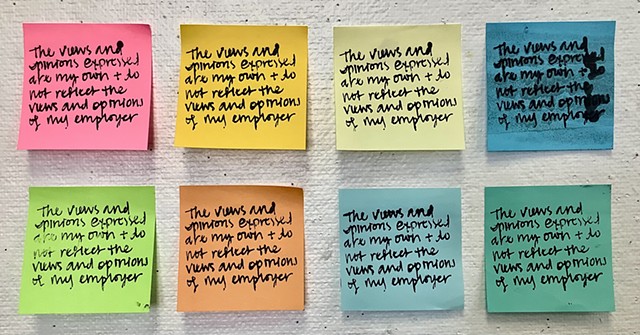 The views and
opinions expressed
are my own + do
not reflect the
views and opinions
of my employer
The views and
opinions expressed
are my own + do
not reflect the
views and opinions
of my employer
The views and
opinions expressed
are my own + do
not reflect the
views and opinions
of my employer
The views and
opinions expressed
are my own + do
not reflect the
views and opinions
of my employer
The views and
opinions expressed
are my own + do
not reflect the
views and opinions
of my employer
The views and
opinions expressed
are my own + do
not reflect the
views and opinions
of my employer
The views and
opinions expressed
are my own + do
not reflect the
views and opinions
of my employer
The views and
opinions expressed
are my own + do
not reflect the
views and opinions
of my employer